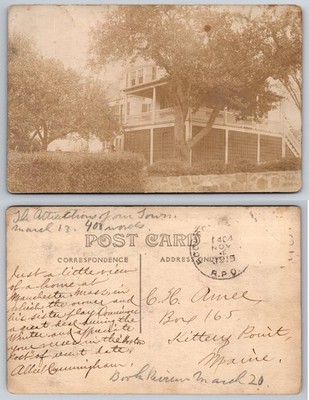 The Attractions of our Town.
March 13. 400 words
POST CARD
CORRESPONDENCE
ADDRESS ONLY
NOV
1915
R.P.O.
Just a little view
of a home at
Manchester, Mass, in
which the owner and
his sister play Cunningham
a great deal during the
Winter and appeals to
your review in the Boston
Post of recent date.
Allen Cunningham.
C. H. Amee,
Box 165.
Kittery Point,
Maine.
Book Review March 20.